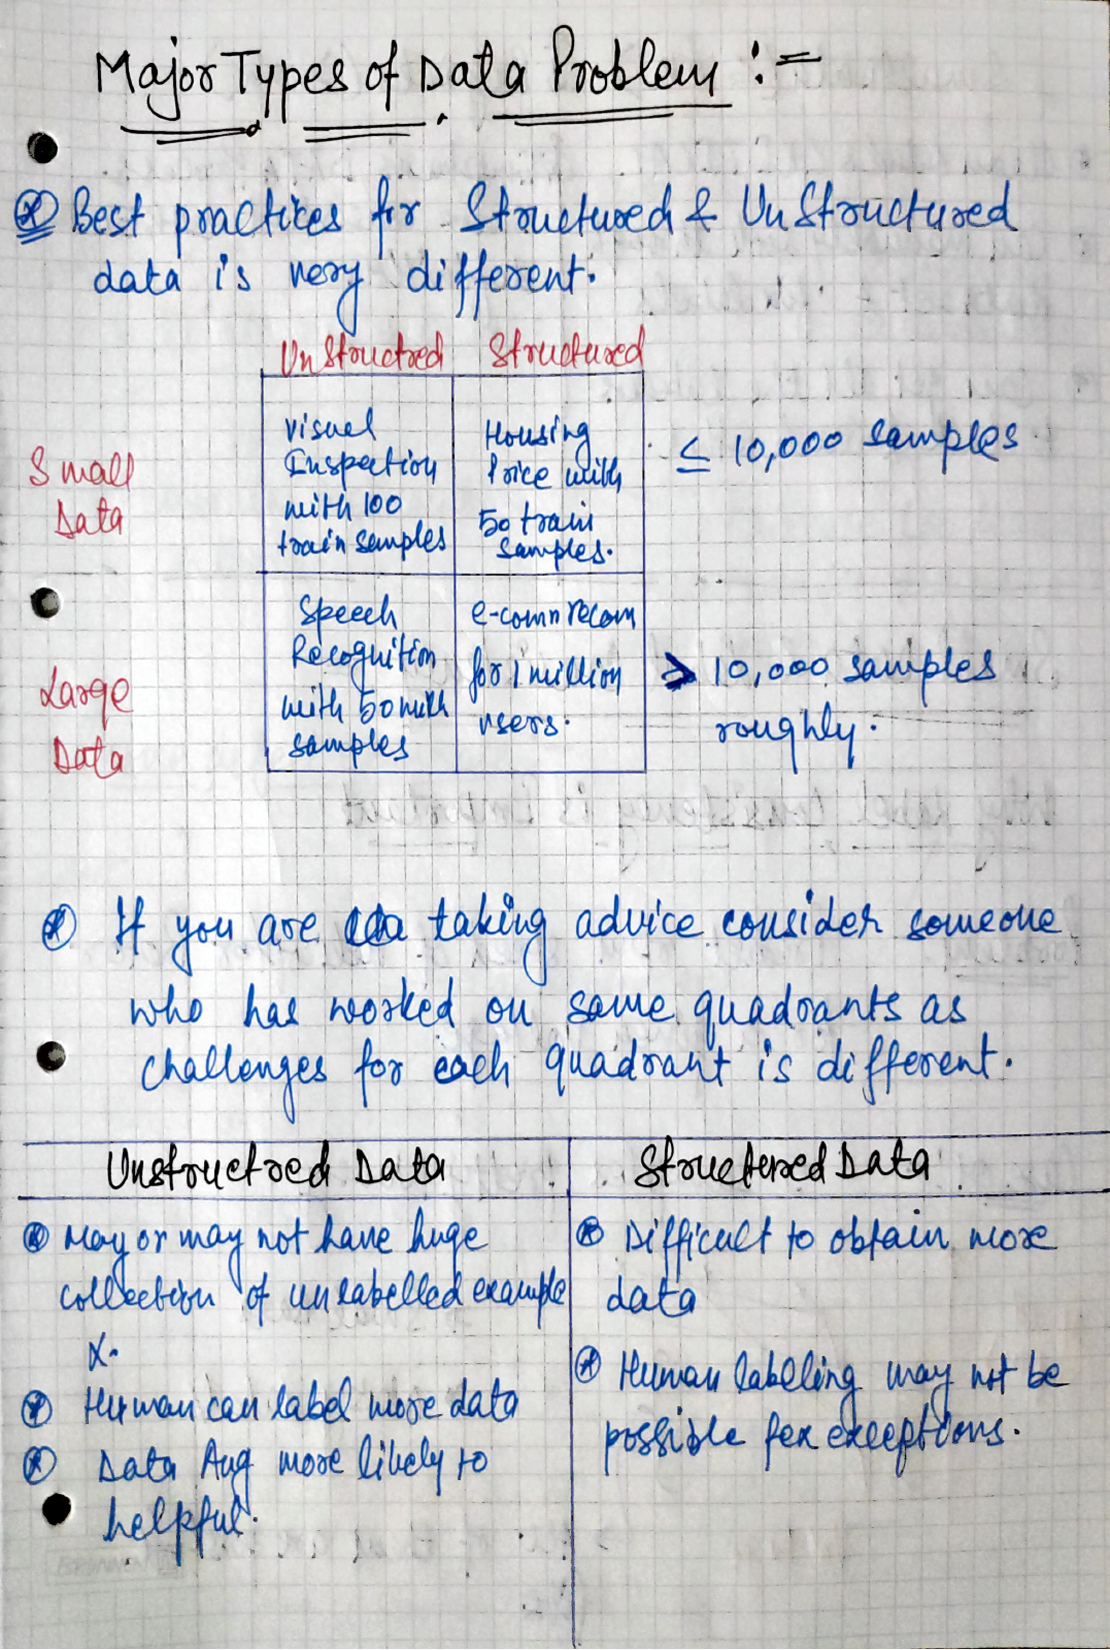 Major Types of Data Problem :-
Best practices for Structured & UnStructured
data is very different.
UnStructred Structured
Small
Data
visual
Inspection
with 100
train samples
Housing
Price with
50 train
samples.
≤ 10,000 samples
Large
Data
Speech
Recognition
with 50 mill
samples
e-comm recom
for 1 million
users.
> 10,000 samples
roughly.
If you are taking advice consider someone
who has worked on same quadrants as
challenges for each quadrant is different.
Unstructred Data
Structured Data
May or may not have huge
collection of unlabelled example
x.
Human can label more data
Data Aug more likely to
helpful.
Difficult to obtain more
data
Human labelling may not be
possible few exceptions.